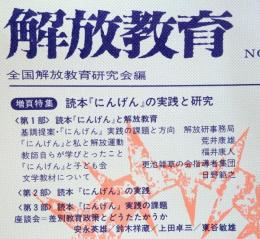 解放教育
全国解放教育研究会編
NO
増頁特集 読本『にんげん』の実践と研究
〈第1部〉読本『にんげん』と解放教育
基調提案・『にんげん』実践の課題と方向 解放研事務局
『にんげん』と私と解放運動 荒井康雄
教師自らが学びとったこと 福井康人
『にんげん』と子ども会 更池雑草の会指導者集団
文学教材について 日野範之
〈第2部〉読本『にんげん』の実践
〈第3部〉読本『にんげん』実践の課題
座談会―差別教育政策とどうたたかうか
安永英雄／鈴木祥蔵／上田卓三／東谷敏雄